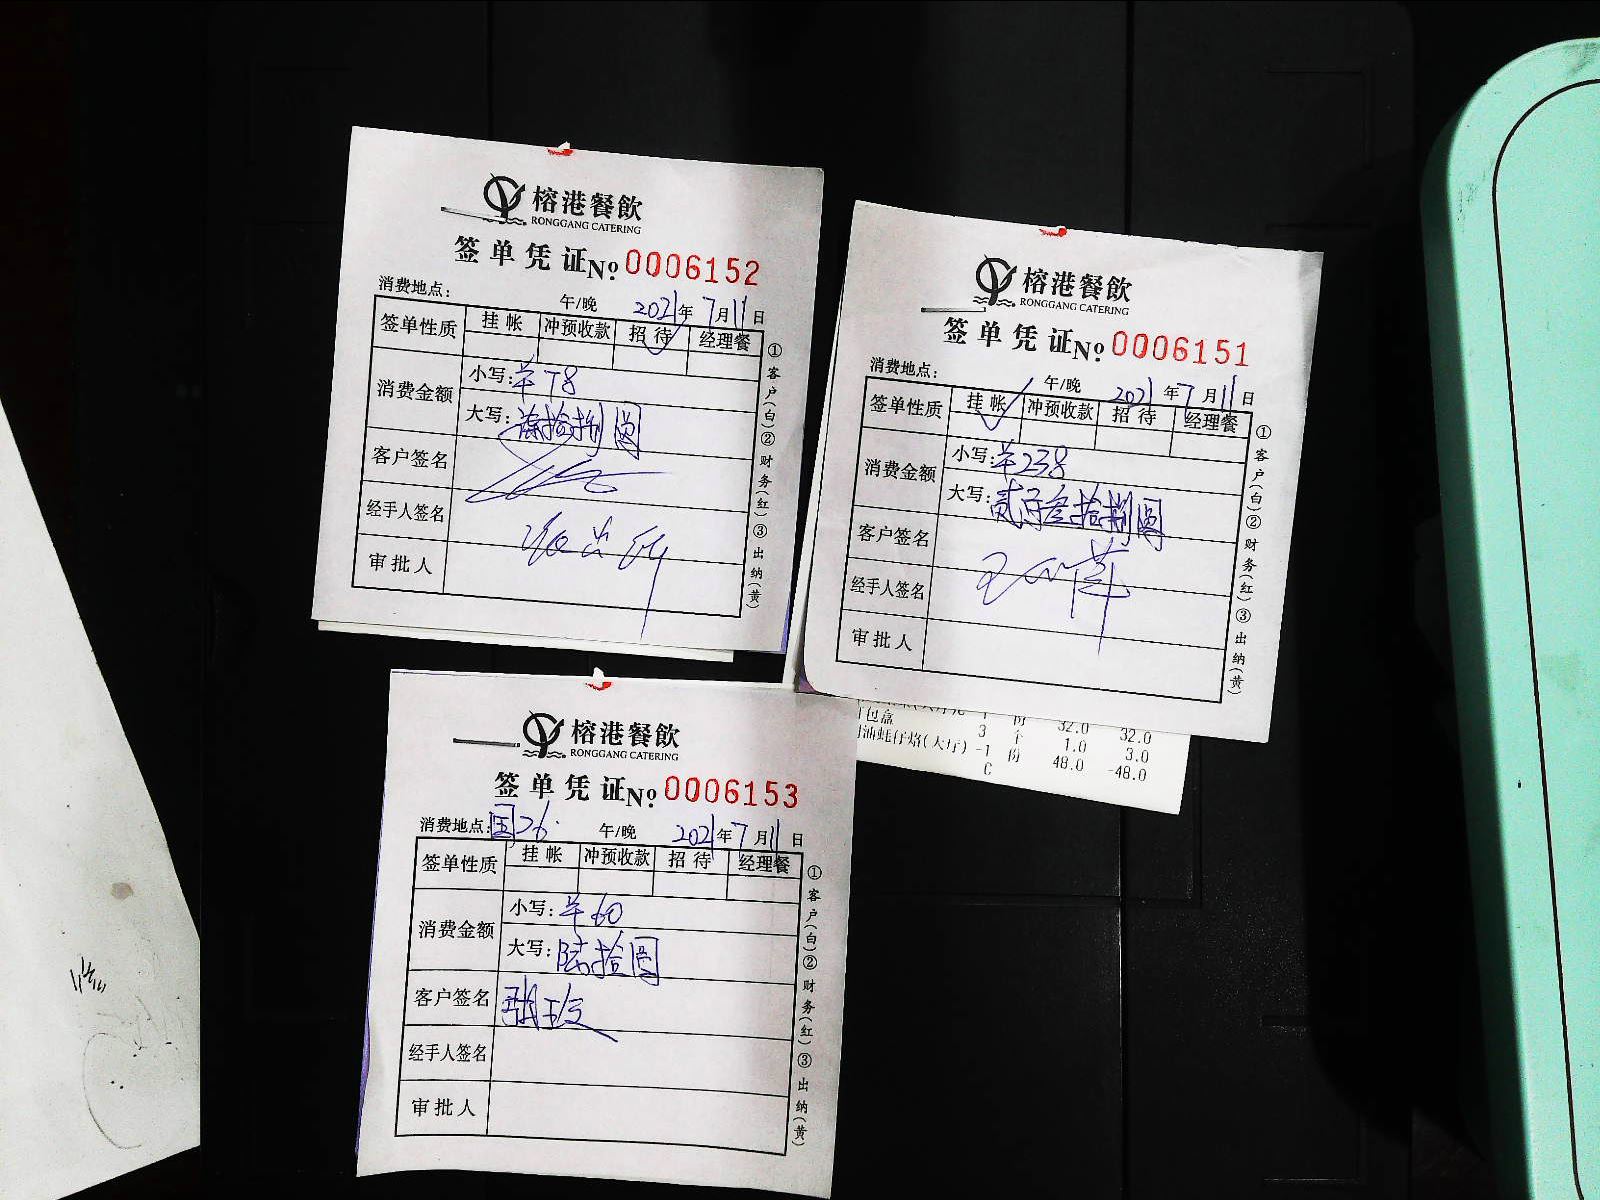 榕港餐飲
RONGGANG CATERING
签单凭证№0006152
消费地点: 午/晚 2021年7月11日
签单性质 挂帐 冲预收款 招待 经理餐
消费金额 小写:￥78
大写:柒拾捌圆
客户签名
经手人签名
审批人
①客户(白)②财务(红)③出纳(黄)
榕港餐飲
RONGGANG CATERING
签单凭证№0006151
消费地点: 午/晚 2021年7月11日
签单性质 挂帐 冲预收款 招待 经理餐
消费金额 小写:￥238
大写:贰佰叁拾捌圆
客户签名
经手人签名
审批人
①客户(白)②财务(红)③出纳(黄)
1 份 32.0 32.0
包盒 3 个 1.0 3.0
油蚝仔烙(大厅) -1 份 48.0 -48.0
C
榕港餐飲
RONGGANG CATERING
签单凭证№0006153
消费地点: 26 午/晚 2021年7月11日
签单性质 挂帐 冲预收款 招待 经理餐
消费金额 小写:￥60
大写:陆拾圆
客户签名
经手人签名
审批人
①客户(白)②财务(红)③出纳(黄)